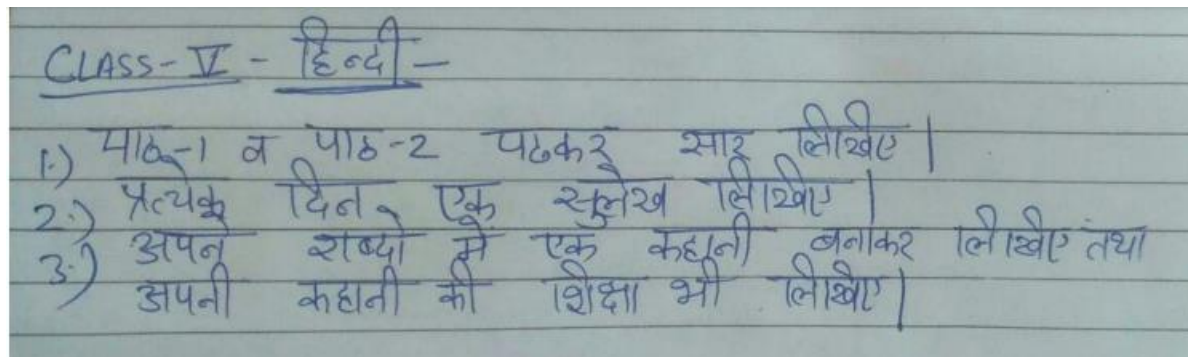 CLASS- V - हिन्दी -
1.) पाठ-1 व पाठ-2 पढकर सार लिखिए |
2.) प्रत्येक दिन एक सुलेख लिखिए |
3.) अपने शब्दो में एक कहानी बनाकर लिखिए तथा
अपनी कहानी की शिक्षा भी लिखिए |